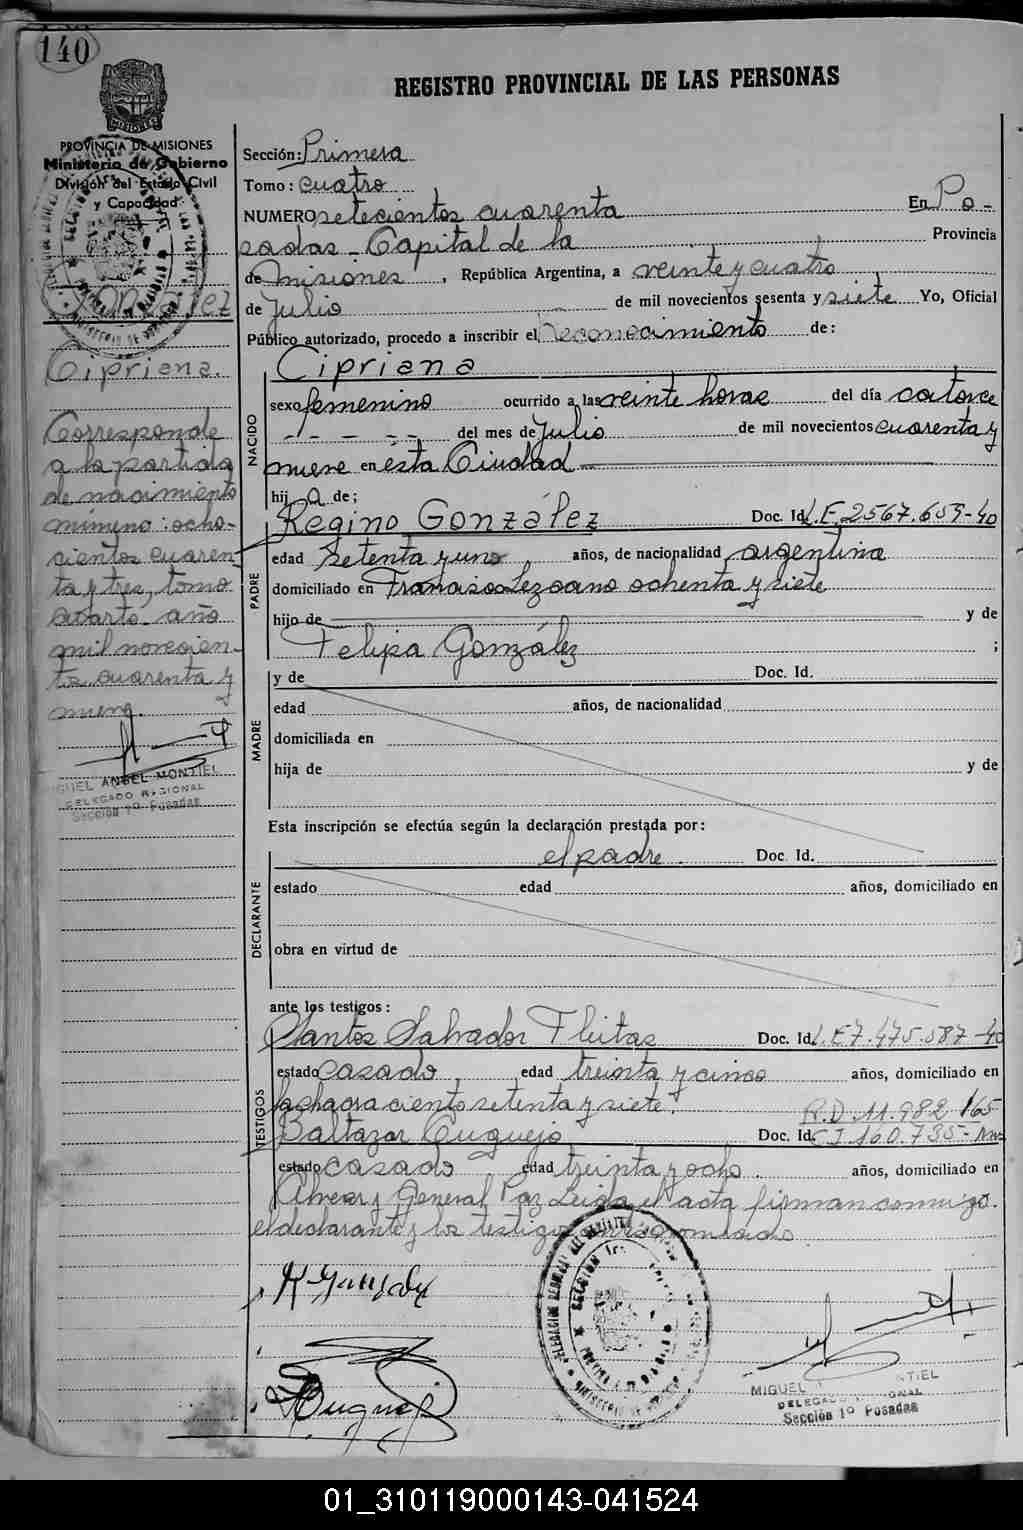 140
REGISTRO PROVINCIAL DE LAS PERSONAS
PROVINCIA DE MISIONES
Ministerio de Gobierno
División del Estado Civil
y Capacidad
González
Cipriana.
Corresponde
a la partida
de nacimiento
número: ocho-
cientos cuaren
ta y tres, tomo
cuarto año
mil novecien-
tos cuarenta y
nueve.
MIGUEL ANGEL MONTIEL
DELEGADO REGIONAL
Sección 1º Posadas
Sección: Primera
Tomo: cuatro
NUMERO setecientos cuarenta En Po-
sadas. Capital de la Provincia
de Misiones, República Argentina, a veinte y cuatro
de Julio de mil novecientos sesenta y siete Yo, Oficial
Público autorizado, procedo a inscribir el Reconocimiento de:
NACIDO
Cipriana
sexo femenino ocurrido a las veinte horas del día catorce
del mes de Julio de mil novecientos cuarenta y
nueve en esta Ciudad
hij a de;
PADRE
Regino González Doc. Id. L.E. 2567.659-40
edad setenta y uno años, de nacionalidad argentina
domiciliado en Francisco Lezcano ochenta y siete
hijo de y de
Felipa González ;
MADRE
y de Doc. Id.
edad años, de nacionalidad
domiciliada en
hija de y de
Esta inscripción se efectúa según la declaración prestada por:
DECLARANTE
el padre. Doc. Id.
estado edad años, domiciliado en
obra en virtud de
ante los testigos:
TESTIGOS
Santos Salvador Fleitas Doc. Id. L.E 7.475.587-40
estado casado, edad treinta y cinco años, domiciliado en
la chacra ciento setenta y siete. R.D 11.982/65
Baltazar Cuguejo Doc. Id. C.I. 160.735- Mnes
estado casado edad treinta y ocho. años, domiciliado en
Alvear y General Paz. Leida el acta firman conmigo.
el declarante y los testigos
R Gonzalez
Cuguejo
MIGUEL MONTIEL
DELEGADO REGIONAL
Sección 1º Posadas
01_310119000143-041524